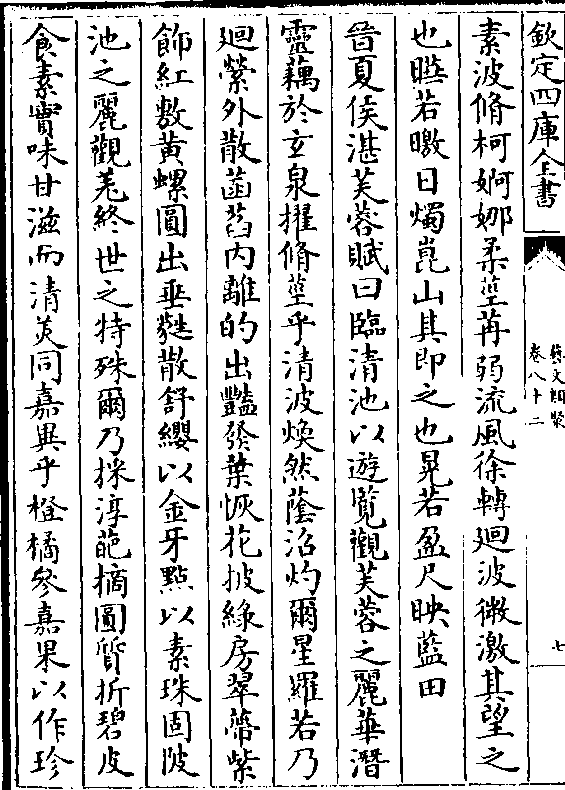 欽定四庫全書
藝文類聚
卷八十二
七
素波脩柯婀娜柔莖苒弱流風徐轉廻波微激其望之
也㬢若曒日燭崑山其即之也晃若盈尺映藍田
晉夏侯湛芙蓉賦曰臨清池以遊覧觀芙蓉之麗華潛
靈藕於玄泉擢脩莖乎清波煥然蔭沼灼爾星羅若乃
廻縈外散菡萏内離的出豔發葉恢花披緑房翠蔕紫
飾紅敷黄螺圓出垂蕤散舒纓以金牙點以素珠固陂
池之麗觀羗終世之特殊爾乃採淳葩摘圓質折碧皮
食素實味甘滋而清美同嘉異乎橙橘參嘉果以作珍